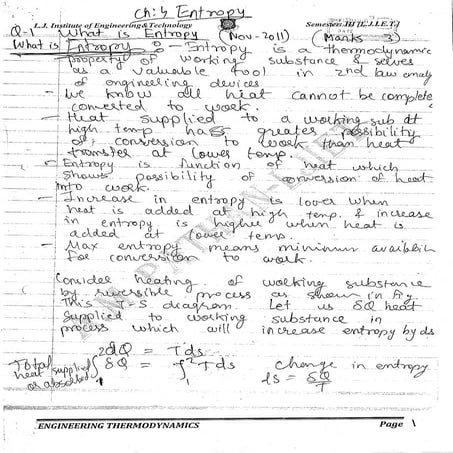 ch: 5 Entropy
L.J. Institute of Engineering & Technology Semester: III [L.J.I.E.T.]
Q-1 What is Entropy (Nov-2011) (Marks 3)
What is Entropy ? - Entropy is a thermodynamic
property of working substance & serves
as a valuable tool in 2nd law analy
of engineering devices
- We know all heat cannot be complete
converted to work.
- Heat supplied to a working sub at
high temp has greater possibility
of conversion to work than heat
transfer at lower temp.
- Entropy is function of heat which
shows possibility of conversion of heat
into work.
- Increase in entropy is lower when
heat is added at high temp. & increase
in entropy is higher when heat is
added at lower temp.
- Max entropy means minimum availability
for conversion to work.
Consider heating of working substance
by reversible process as shown in fig.
This T-S diagram. Let us δQ heat
supplied to working substance in
process which will increase entropy by ds
2dQ = Tds change in entropy
Total heat supplied or absorbed ∫ δQ = ∫ Tds ds = δQ
1 1 T
ENGINEERING THERMODYNAMICS Page 1